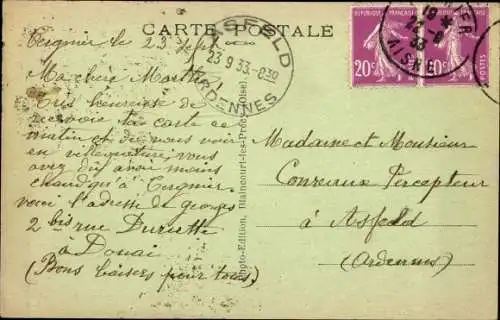 CARTE POSTALE
Tergnier le 23 Sept
Ma chère Marthe
Très heureuse de
recevoir ta carte ce
matin et de vous voir
en villégiature vous
avez dû avoir moins
chaud qu'à Tergnier
voici l'adresse de georges
2 bis rue
à Douai
(Bons baisers pour tous)
ASFELD
23 9 33 - 8 30
ARDENNES
Photo-Edition, Blaincourt-les-Précy (Oise).
REPUBLIQUE FRANÇAISE
20c
POSTES
AISNE
Madame et Monsieur
Percepteur
à Asfeld
(Ardennes)